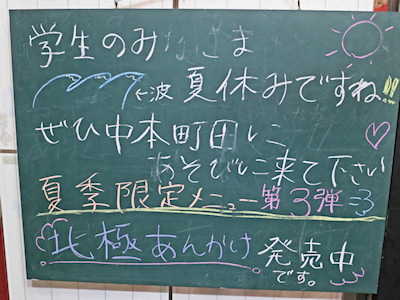 学生のみなさま
←波 夏休みですね!!
ぜひ中本町田に
あそびに来て下さい
夏季限定メニュー第3弾
北極あんかけ 発売中
です。